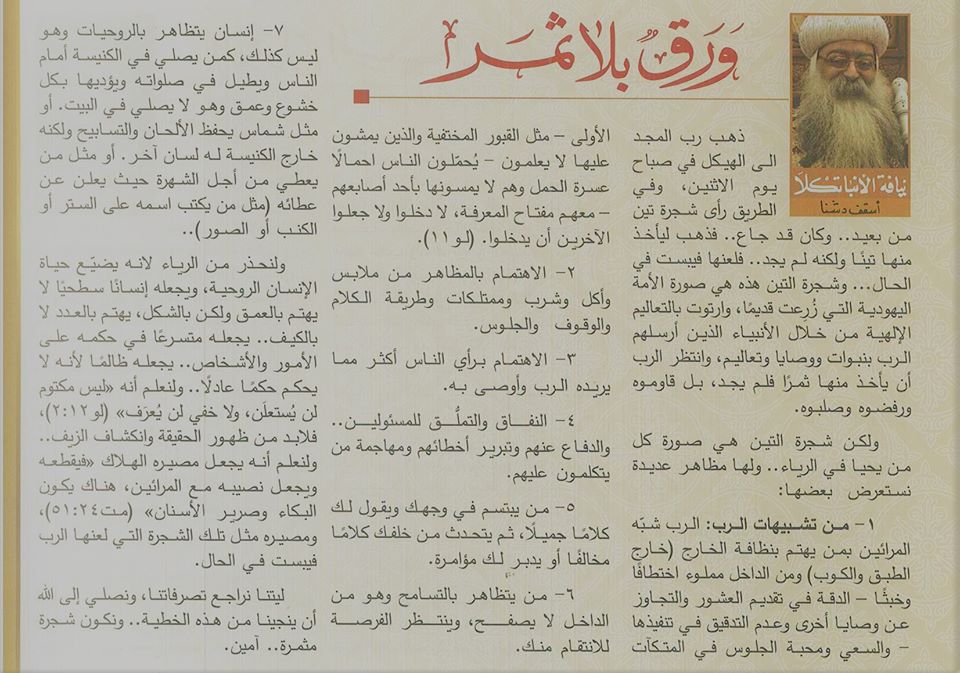 وَرَقٌ بلا ثمَر!
نيافة الأنبا تكلا
أسقف دشنا
ذهب رب المجد
الى الهيكل في صباح
يوم الاثنين، وفي
الطريق رأى شجرة تين
من بعيد.. وكان قد جاع.. فذهب ليأخذ
منها تينًا ولكنه لم يجد.. فلعنها فيبست في
الحال... وشجرة التين هذه هي صورة الأمة
اليهودية التي زُرعت قديمًا، وارتوت بالتعاليم
الإلهية من خلال الأنبياء الذين أرسلهم
الرب بنبوات ووصايا وتعاليم، وانتظر الرب
أن يأخذ منها ثمرًا فلم يجد، بل قاوموه
ورفضوه وصلبوه.
ولكن شجرة التين هي صورة كل
من يحيا في الرياء.. ولها مظاهر عديدة
نستعرض بعضها:
١- من تشبيهات الرب: الرب شبّه
المرائين بمن يهتم بنظافة الخارج (خارج
الطبق والكوب) ومن الداخل مملوء اختطافًا
وخبثًا - الدقة في تقديم العشور والتجاوز
عن وصايا أخرى وعدم التدقيق في تنفيذها
- والسعي ومحبة الجلوس في المتكآت
الأولى - مثل القبور المختفية والذين يمشون
عليها لا يعلمون - يُحمّلون الناس احمالًا
عسرة الحمل وهم لا يمسونها بأحد أصابعهم
- معهم مفتاح المعرفة، لا دخلوا ولا جعلوا
الآخرين أن يدخلوا. (لو١١).
٢- الاهتمام بالمظاهر من ملابس
وأكل وشرب وممتلكات وطريقة الكلام
والوقوف والجلوس.
٣- الاهتمام برأي الناس أكثر مما
يريده الرب وأوصى به.
٤- النفاق والتملُّق للمسئولين..
والدفاع عنهم وتبرير أخطائهم ومهاجمة من
يتكلمون عليهم.
٥- من يبتسم في وجهك ويقول لك
كلامًا جميلًا، ثم يتحدث من خلفك كلامًا
مخالفًا أو يدبر لك مؤامرة.
٦- من يتظاهر بالتسامح وهو من
الداخل لا يصفح، وينتظر الفرصة
للانتقام منك.
٧- إنسان يتظاهر بالروحيات وهو
ليس كذلك، كمن يصلي في الكنيسة أمام
الناس ويطيل في صلواته ويؤديها بكل
خشوع وعمق وهو لا يصلي في البيت. أو
مثل شماس يحفظ الألحان والتسابيح ولكنه
خارج الكنيسة له لسان آخر. أو مثل من
يعطي من أجل الشهرة حيث يعلن عن
عطائه (مثل من يكتب اسمه على الستر أو
الكتب أو الصور)..
ولنحذر من الرياء لانه يضيّع حياة
الإنسان الروحية، ويجعله إنسانًا سطحيًا لا
يهتم بالعمق ولكن بالشكل، يهتم بالعدد لا
بالكيف.. يجعله متسرعًا في حكمه على
الأمور والأشخاص.. يجعله ظالمًا لأنه لا
يحكم حكمًا عادلًا.. ولنعلم أنه «ليس مكتوم
لن يُستعلَن، ولا خفي لن يُعرَف» (لو٢:١٢)،
فلابد من ظهور الحقيقة وانكشاف الزيف..
ولنعلم أنه يجعل مصيره الهلاك «فيقطعه
ويجعل نصيبه مع المرائين، هناك يكون
البكاء وصرير الأسنان» (مت٥١:٢٤)،
ومصيره مثل تلك الشجرة التي لعنها الرب
فيبست في الحال.
ليتنا نراجع تصرفاتنا، ونصلي إلى الله
أن ينجينا من هذه الخطية.. ونكون شجرة
مثمرة.. آمين.